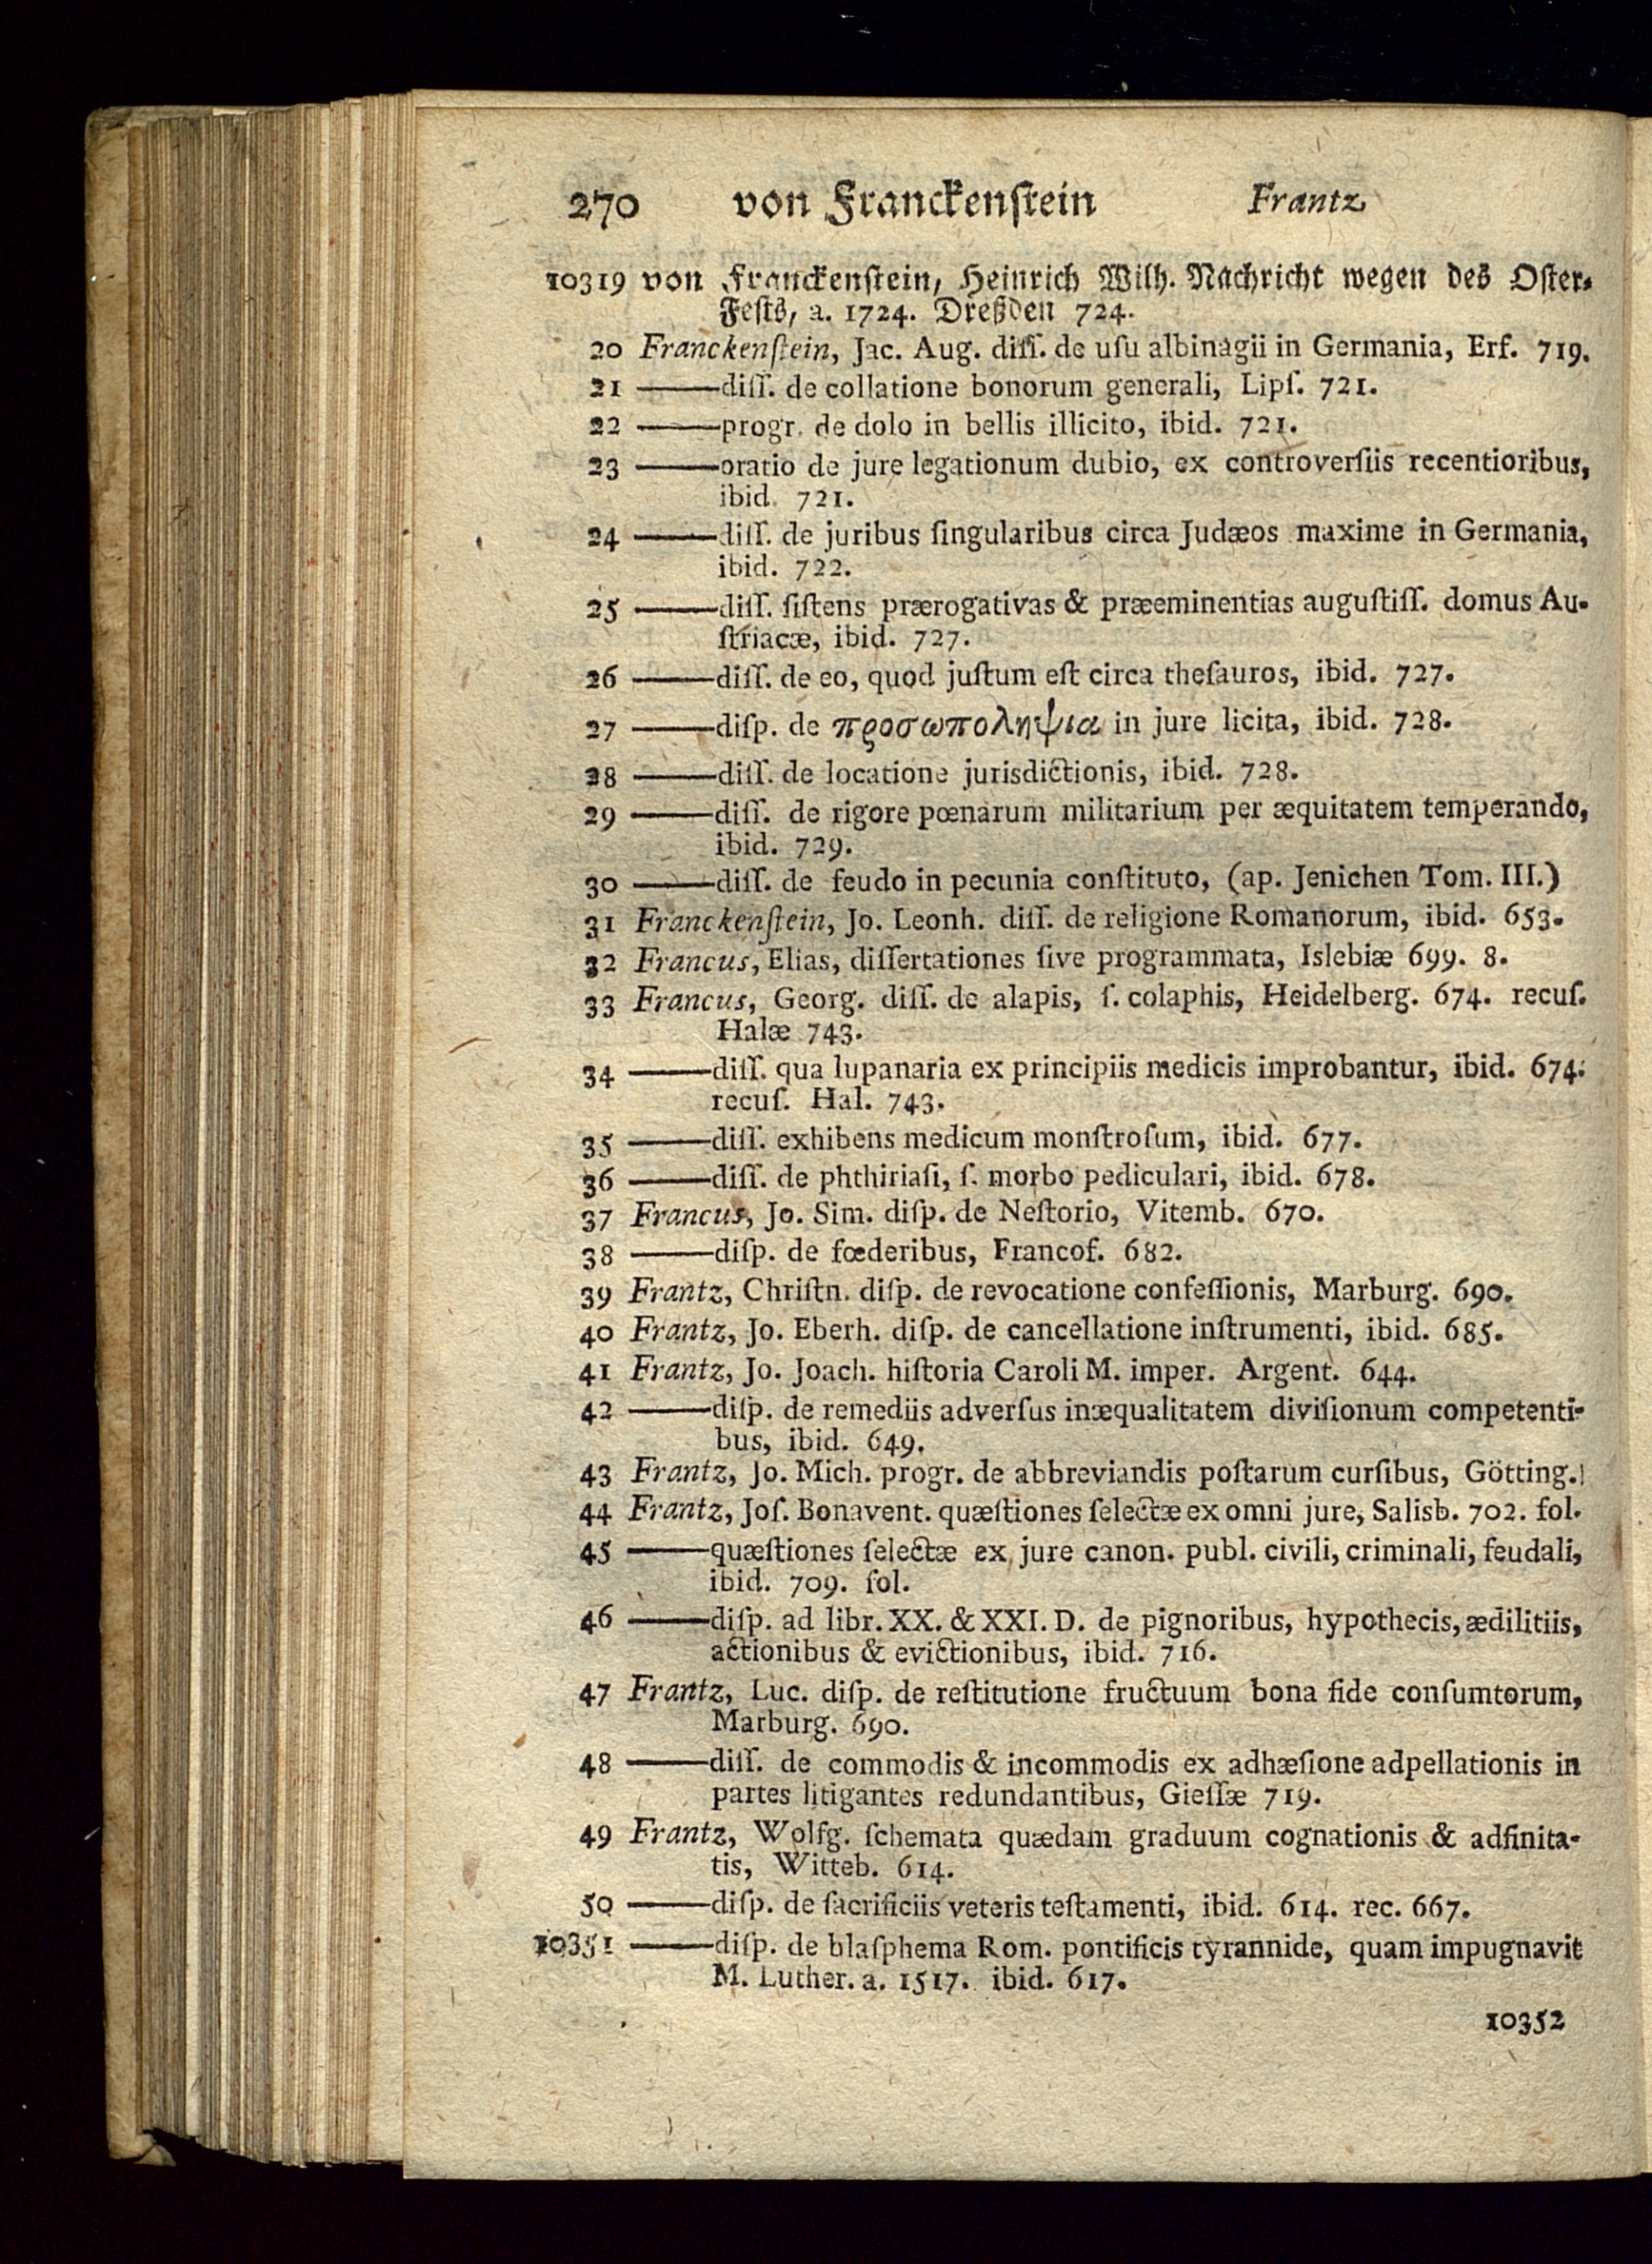 270 von Franckenſtein Frantz
10319 von Franckenſtein, Heinrich Wilh. Nachricht wegen des Oſter-
Feſts, a. 1724. Dreßden 724.
20 Franckenſtein, Jac. Aug. diſſ. de uſu albinagii in Germania, Erf. 719.
21 ——diſſ. de collatione bonorum generali, Lipſ. 721.
22 ——progr. de dolo in bellis illicito, ibid. 721.
23 ——oratio de jure legationum dubio, ex controverſiis recentioribus,
ibid. 721.
24 ——diſſ. de juribus ſingularibus circa Judæos maxime in Germania,
ibid. 722.
25 ——diſſ. ſiſtens prærogativas & præeminentias auguſtiſſ. domus Au-
ſtriacæ, ibid. 727.
26 ——diſſ. de eo, quod juſtum eſt circa theſauros, ibid. 727.
27 ——diſp. de προσωποληψια in jure licita, ibid. 728.
28 ——diſſ. de locatione jurisdictionis, ibid. 728.
29 ——diſſ. de rigore pœnarum militarium per æquitatem temperando,
ibid. 729.
30 ——diſſ. de feudo in pecunia conſtituto, (ap. Jenichen Tom. III.)
31 Franckenſtein, Jo. Leonh. diſſ. de religione Romanorum, ibid. 653.
32 Francus, Elias, diſſertationes ſive programmata, Islebiæ 699. 8.
33 Francus, Georg. diſſ. de alapis, ſ. colaphis, Heidelberg. 674. recuſ.
Halæ 743.
34 ——diſſ. qua lupanaria ex principiis medicis improbantur, ibid. 674.
recuſ. Hal. 743.
35 ——diſſ. exhibens medicum monſtroſum, ibid. 677.
36 ——diſſ. de phthiriaſi, ſ. morbo pediculari, ibid. 678.
37 Francus, Jo. Sim. diſp. de Neſtorio, Vitemb. 670.
38 ——diſp. de fœderibus, Francof. 682.
39 Frantz, Chriſtn. diſp. de revocatione confeſſionis, Marburg. 690.
40 Frantz, Jo. Eberh. diſp. de cancellatione inſtrumenti, ibid. 685.
41 Frantz, Jo. Joach. hiſtoria Caroli M. imper. Argent. 644.
42 ——diſp. de remediis adverſus inæqualitatem diviſionum competenti-
bus, ibid. 649.
43 Frantz, Jo. Mich. progr. de abbreviandis poſtarum curſibus, Götting.
44 Frantz, Joſ. Bonavent. quæſtiones ſelectæ ex omni jure, Salisb. 702. fol.
45 ——quæſtiones ſelectæ ex jure canon. publ. civili, criminali, feudali,
ibid. 709. fol.
46 ——diſp. ad libr. XX. & XXI. D. de pignoribus, hypothecis, ædilitiis,
actionibus & evictionibus, ibid. 716.
47 Frantz, Luc. diſp. de reſtitutione fructuum bona fide conſumtorum,
Marburg. 690.
48 ——diſſ. de commodis & incommodis ex adhæſione adpellationis in
partes litigantes redundantibus, Gieſſæ 719.
49 Frantz, Wolfg. ſchemata quædam graduum cognationis & adfinita-
tis, Witteb. 614.
50 ——diſp. de ſacrificiis veteris teſtamenti, ibid. 614. rec. 667.
10351 ——diſp. de blaſphema Rom. pontificis tyrannide, quam impugnavit
M. Luther. a. 1517. ibid. 617.
10352